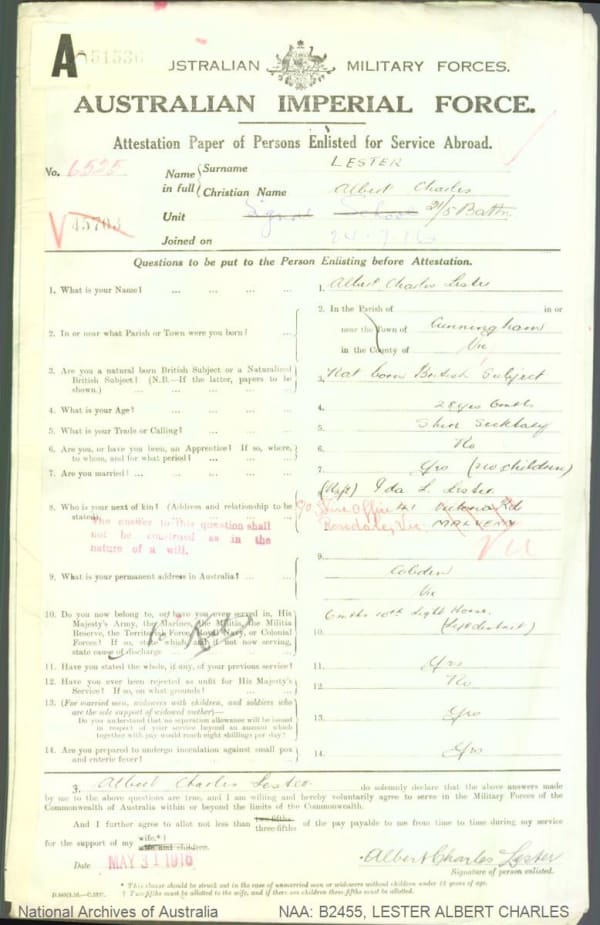 A 51536
USTRALIAN MILITARY FORCES.
AUSTRALIAN IMPERIAL FORCE.
Attestation Paper of Persons Enlisted for Service Abroad.
No. 6525
Name in full { Surname LESTER
Christian Name Albert Charles
Unit Signal School 21/5 Battn
Joined on 24.7.16
Questions to be put to the Person Enlisting before Attestation.
1. What is your Name? ... ... ... ... 1. Albert Charles Lester
2. In or near what Parish or Town were you born? ... 2. In the Parish of in or
near the Town of Cunningham
in the County of Vic
3. Are you a natural born British Subject or a Naturalized
British Subject? (N.B.—If the latter, papers to be
shown.) ... ... ... ... 3. Nat born British Subject
4. What is your Age? ... ... ... ... 4. 28 yrs 6mths
5. What is your Trade or Calling? ... ... ... 5. Shire Secretary
6. Are you, or have you been, an Apprentice? If so, where,
to whom, and for what period? ... ... ... 6. No
7. Are you married? ... ... ... ... 7. Yes (no children)
8. Who is your next of kin? (Address and relationship to be
stated) (Wife) Ida L. Lester
c/o Shire Office 41 Victoria Rd
Rosedale, Vic MALVERN
Vic
The answer to This question shall
not be construed as in the
nature of a will.
9. What is your permanent address in Australia? ... ... 9. Cobden
Vic
10. Do you now belong to, or have you ever served in, His
Majesty's Army, the Marines, the Militia, the Militia
Reserve, the Territorial Force, Royal Navy, or Colonial
Forces? If so, state which, and if not now serving,
state cause of discharge 10. 6mths 10th Light Horse
(left district)
11. Have you stated the whole, if any, of your previous service? 11. Yes
12. Have you ever been rejected as unfit for His Majesty's
Service? If so, on what grounds? ... ... 12. No
13. (For married men, widowers with children, and soldiers who
are the sole support of widowed mother)—
Do you understand that no separation allowance will be issued
in respect of your service beyond an amount which
together with pay would reach eight shillings per day? 13. Yes
14. Are you prepared to undergo inoculation against small pox
and enteric fever? ... ... ... 14. Yes
3. Albert Charles Lester do solemnly declare that the above answers made
by me to the above questions are true, and I am willing and hereby voluntarily agree to serve in the Military Forces of the
Commonwealth of Australia within or beyond the limits of the Commonwealth.
And I further agree to allot not less than two-fifths three-fifths of the pay payable to me from time to time during my service
for the support of my wife,*†
wife and children.
Date MAY 31 1916
Albert Charles Lester
Signature of person enlisted.
* This clause should be struck out in the case of unmarried men or widowers without children under 18 years of age.
† Two-fifths must be allotted to the wife, and if there are children three-fifths must be allotted.
National Archives of Australia NAA: B2455, LESTER ALBERT CHARLES